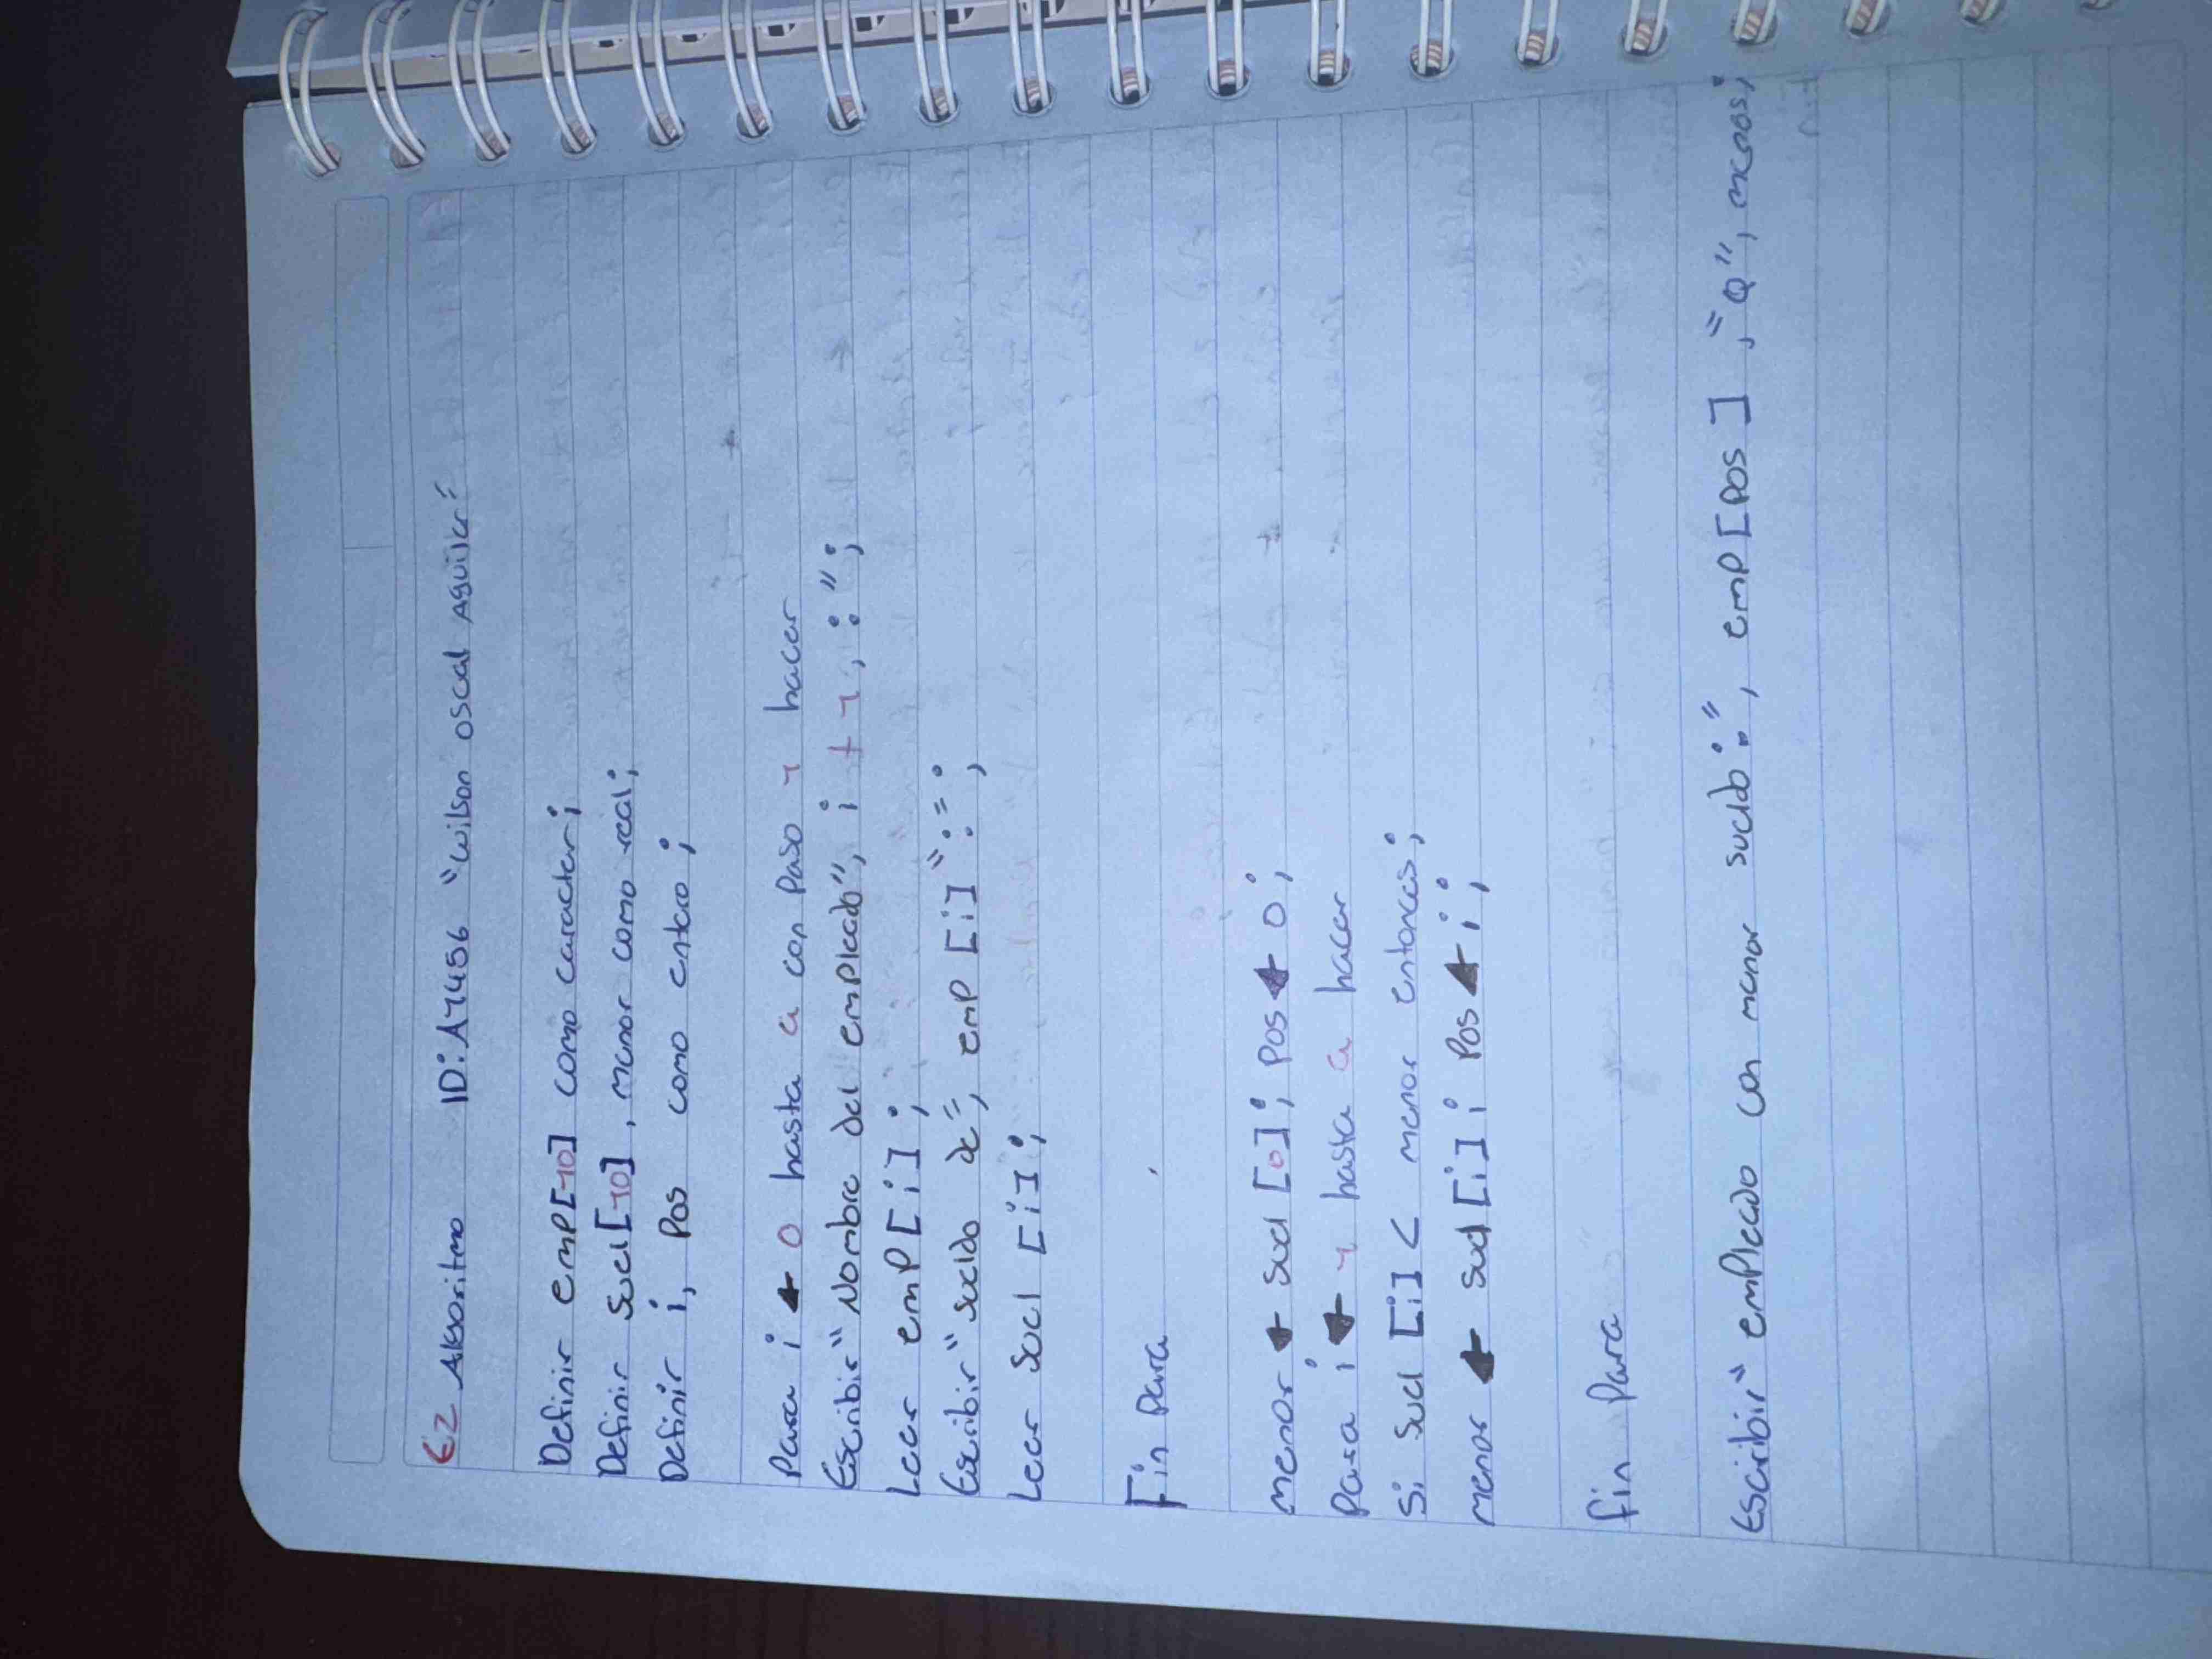 E2 Algoritmo ID: A17456 "Wilson oscal Aguilar"
Definir emp[10] como caracter;
Definir suel[10], menor como real;
Definir i, Pos como entero;
Para i ← 0 hasta 9 con paso 1 hacer
Escribir "Nombre del empleado", i + 1, ":";
Leer emp[i];
Escribir "sueldo de", emp [i] ":";
Leer suel [i];
Fin para
menor ← suel [0]; pos ← 0;
Para i ← 1 hasta 9 hacer
Si suel [i] < menor entonces;
menor ← suel [i]; Pos ← i;
fin Para
Escribir "empleado con menor sueldo:", emp[pos], "Q", menos;